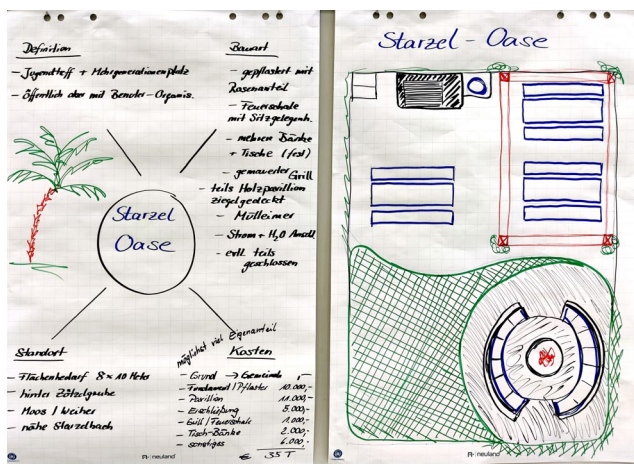 Definition
- Jugendtreff + Mehrgenerationenplatz
- Öffentlich aber mit Benutzer-Organis.
Bauart
- gepflastert mit
Rasenanteil
- Feuerschale
mit Sitzgelegenh.
- mehrere Bänke
+ Tische (fest)
- gemauerter Grill
- teils Holzpavillion
ziegelgedeckt
- Mülleimer
- Strom + H₂O Anschl.
- evtl. teils
geschlossen
Starzel
Oase
Standort
- Flächenbedarf 8 x 10 Meter
- hinter
- Moos / Weiher
- nähe Starzelbach
möglichst viel Eigenanteil
Kosten
- Grund → Gemeinde ,-
- Fundament / Pflaster 10.000,-
- Pavillion 11.000,-
- Erschließung 5.000,-
- Grill / Feuerschale 1.000,-
- Tisch-Bänke 2.000,-
- sonstiges 6.000,-
€ 35 T
neuland
Starzel - Oase
neuland